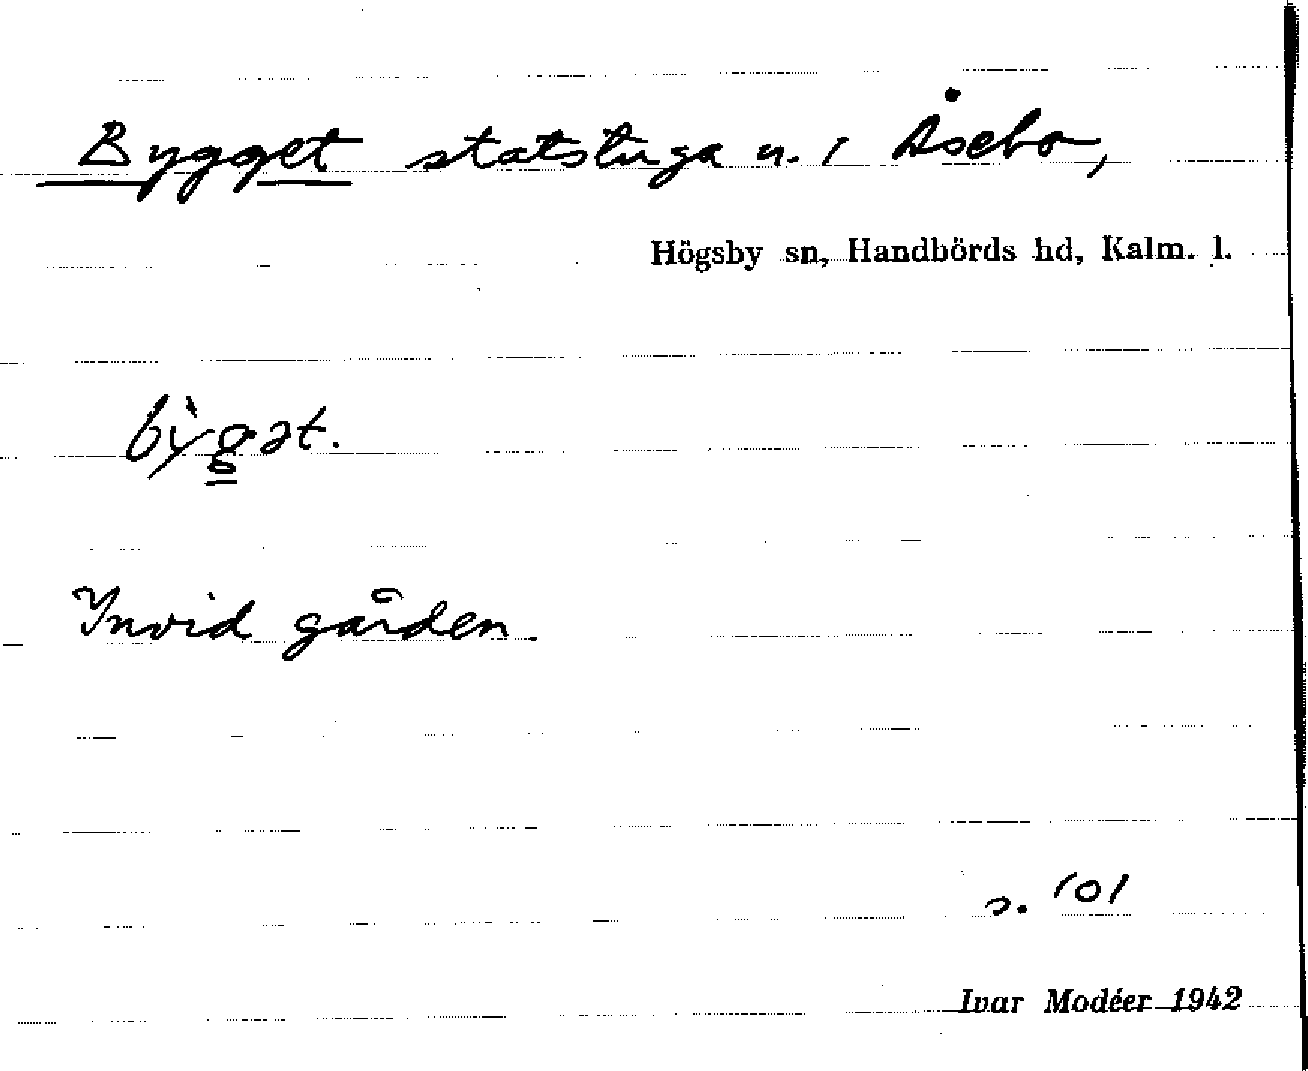 Bygget statstuga u. / Åsebo,
Högsby sn, Handbörds hd, Kalm. l.
bỳg̳ət.
Invid gården.
s. 101
Ivar Modéer 1942